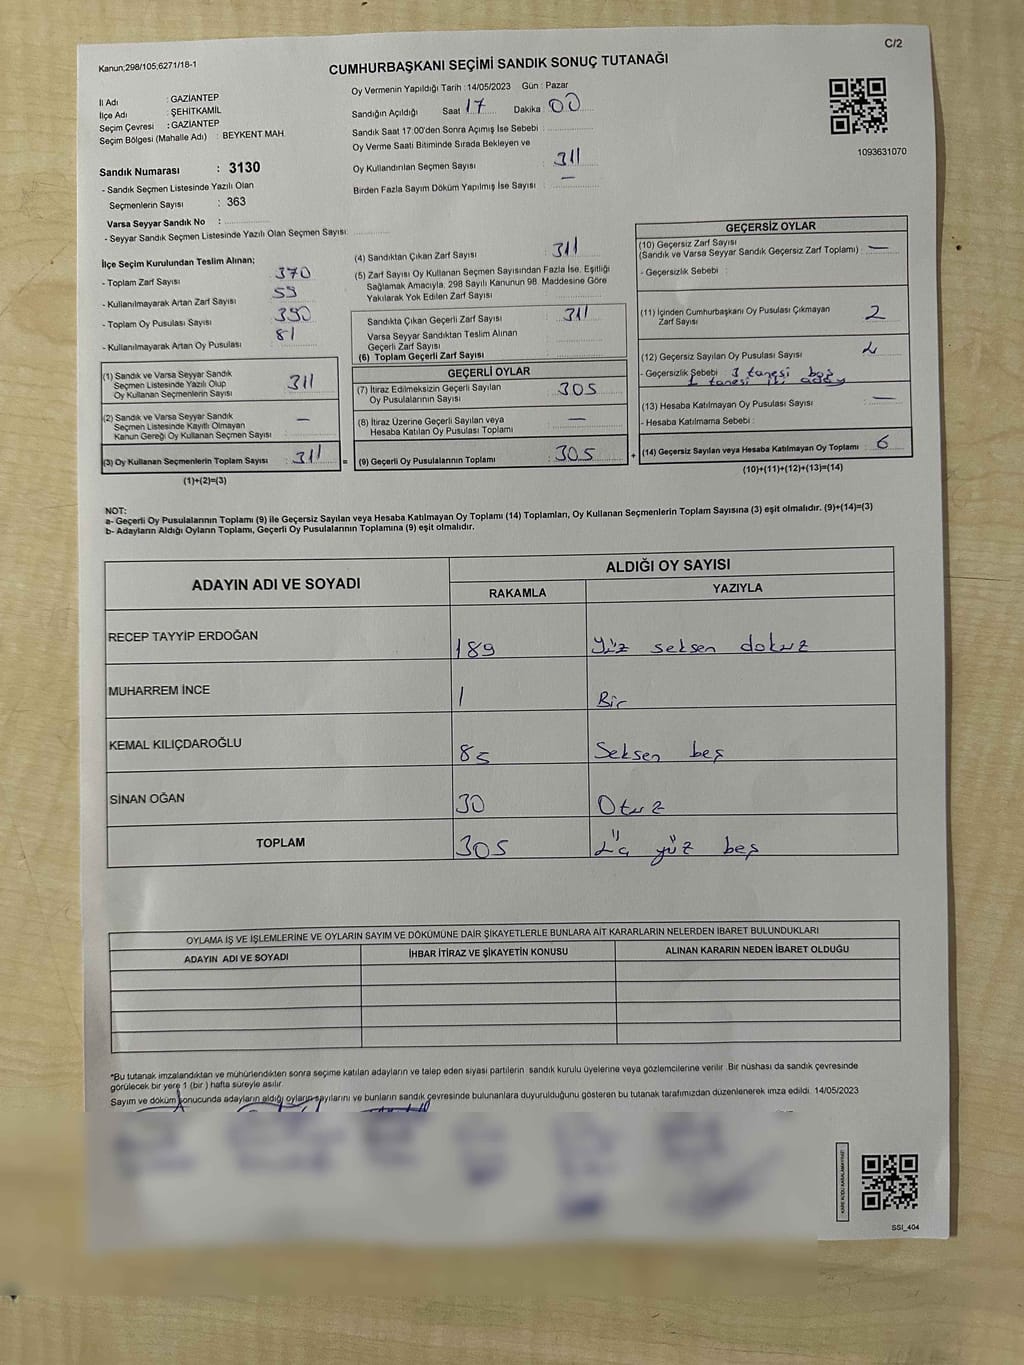 C/2
Kanun;298/105;6271/18-1
CUMHURBAŞKANI SEÇİMİ SANDIK SONUÇ TUTANAĞI
İl Adı : GAZİANTEP
İlçe Adı : ŞEHİTKAMİL
Seçim Çevresi : GAZİANTEP
Seçim Bölgesi (Mahalle Adı) : BEYKENT MAH.
Sandık Numarası : 3130
- Sandık Seçmen Listesinde Yazılı Olan
Seçmenlerin Sayısı : 363
Varsa Seyyar Sandık No :
- Seyyar Sandık Seçmen Listesinde Yazılı Olan Seçmen Sayısı:
Oy Vermenin Yapıldığı Tarih : 14/05/2023 Gün : Pazar
Sandığın Açıldığı Saat 17 Dakika : 00
Sandık Saat 17:00'den Sonra Açımış İse Sebebi :
Oy Verme Saati Bitiminde Sırada Bekleyen ve
Oy Kullandırılan Seçmen Sayısı : 311
Birden Fazla Sayım Döküm Yapılmış İse Sayısı : —
1093631070
İlçe Seçim Kurulundan Teslim Alınan;
- Toplam Zarf Sayısı : 370
- Kullanılmayarak Artan Zarf Sayısı : 59
- Toplam Oy Pusulası Sayısı : 390
- Kullanılmayarak Artan Oy Pusulası : 81
(1) Sandık ve Varsa Seyyar Sandık
Seçmen Listesinde Yazılı Olup
Oy Kullanan Seçmenlerin Sayısı : 311
(2) Sandık ve Varsa Seyyar Sandık
Seçmen Listesinde Kayıtlı Olmayan
Kanun Gereği Oy Kullanan Seçmen Sayısı : —
(3) Oy Kullanan Seçmenlerin Toplam Sayısı : 311 =
(1)+(2)=(3)
(4) Sandıktan Çıkan Zarf Sayısı : 311
(5) Zarf Sayısı Oy Kullanan Seçmen Sayısından Fazla İse, Eşitliği
Sağlamak Amacıyla, 298 Sayılı Kanunun 98. Maddesine Göre
Yakılarak Yok Edilen Zarf Sayısı :
Sandıkta Çıkan Geçerli Zarf Sayısı : 311
Varsa Seyyar Sandıktan Teslim Alınan
Geçerli Zarf Sayısı :
(6) Toplam Geçerli Zarf Sayısı :
GEÇERLİ OYLAR
(7) İtiraz Edilmeksizin Geçerli Sayılan
Oy Pusulalarının Sayısı : 305
(8) İtiraz Üzerine Geçerli Sayılan veya
Hesaba Katılan Oy Pusulası Toplamı : —
(9) Geçerli Oy Pusulalarının Toplamı : 305 +
GEÇERSİZ OYLAR
(10) Geçersiz Zarf Sayısı
(Sandık ve Varsa Seyyar Sandık Geçersiz Zarf Toplamı) : —
- Geçersizlik Sebebi :
(11) İçinden Cumhurbaşkanı Oy Pusulası Çıkmayan
Zarf Sayısı : 2
(12) Geçersiz Sayılan Oy Pusulası Sayısı : 4
- Geçersizlik Sebebi : 3 tanesi boş
1 tanesi iki aday
(13) Hesaba Katılmayan Oy Pusulası Sayısı : —
- Hesaba Katılmama Sebebi :
(14) Geçersiz Sayılan veya Hesaba Katılmayan Oy Toplamı : 6
(10)+(11)+(12)+(13)=(14)
NOT:
a- Geçerli Oy Pusulalarının Toplamı (9) ile Geçersiz Sayılan veya Hesaba Katılmayan Oy Toplamı (14) Toplamları, Oy Kullanan Seçmenlerin Toplam Sayısına (3) eşit olmalıdır. (9)+(14)=(3)
b- Adayların Aldığı Oyların Toplamı, Geçerli Oy Pusulalarının Toplamına (9) eşit olmalıdır.
ADAYIN ADI VE SOYADI
ALDIĞI OY SAYISI
RAKAMLA YAZIYLA
RECEP TAYYİP ERDOĞAN 189 Yüz seksen dokuz
MUHARREM İNCE 1 Bir
KEMAL KILIÇDAROĞLU 85 Seksen beş
SİNAN OĞAN 30 Otuz
TOPLAM 305 Üç yüz beş
OYLAMA İŞ VE İŞLEMLERİNE VE OYLARIN SAYIM VE DÖKÜMÜNE DAİR ŞİKAYETLERLE BUNLARA AİT KARARLARIN NELERDEN İBARET BULUNDUKLARI
ADAYIN ADI VE SOYADI İHBAR İTİRAZ VE ŞİKAYETİN KONUSU ALINAN KARARIN NEDEN İBARET OLDUĞU
*Bu tutanak imzalandıktan ve mühürlendikten sonra seçime katılan adayların ve talep eden siyasi partilerin sandık kurulu üyelerine veya gözlemcilerine verilir. Bir nüshası da sandık çevresinde
görülecek bir yere 1 (bir ) hafta süreyle asılır.
Sayım ve döküm sonucunda adayların aldığı oyların sayılarını ve bunların sandık çevresinde bulunanlara duyurulduğunu gösteren bu tutanak tarafımızdan düzenlenerek imza edildi. 14/05/2023
SSI_404